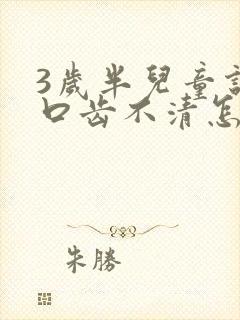 3歲半兒童說
口齿不清怎
朱勝